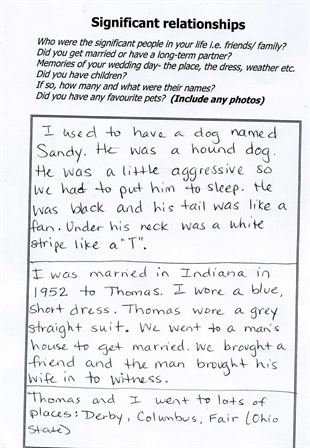 Significant relationships
Who were the significant people in your life i.e. friends/ family?
Did you get married or have a long-term partner?
Memories of your wedding day- the place, the dress, weather etc.
Did you have children?
If so, how many and what were their names?
Did you have any favourite pets? (Include any photos)
I used to have a dog named
Sandy. He was a hound dog.
He was a little aggressive so
we had to put him to sleep. He
was black and his tail was like a
fan. Under his neck was a white
stripe like a "T".
I was married in Indiana in
1952 to Thomas. I wore a blue,
short dress. Thomas wore a grey
straight suit. We went to a man's
house to get married. We brought a
friend and the man brought his
wife in to witness.
Thomas and I went to lots of
places: Derby, Columbus, Fair (Ohio
State)